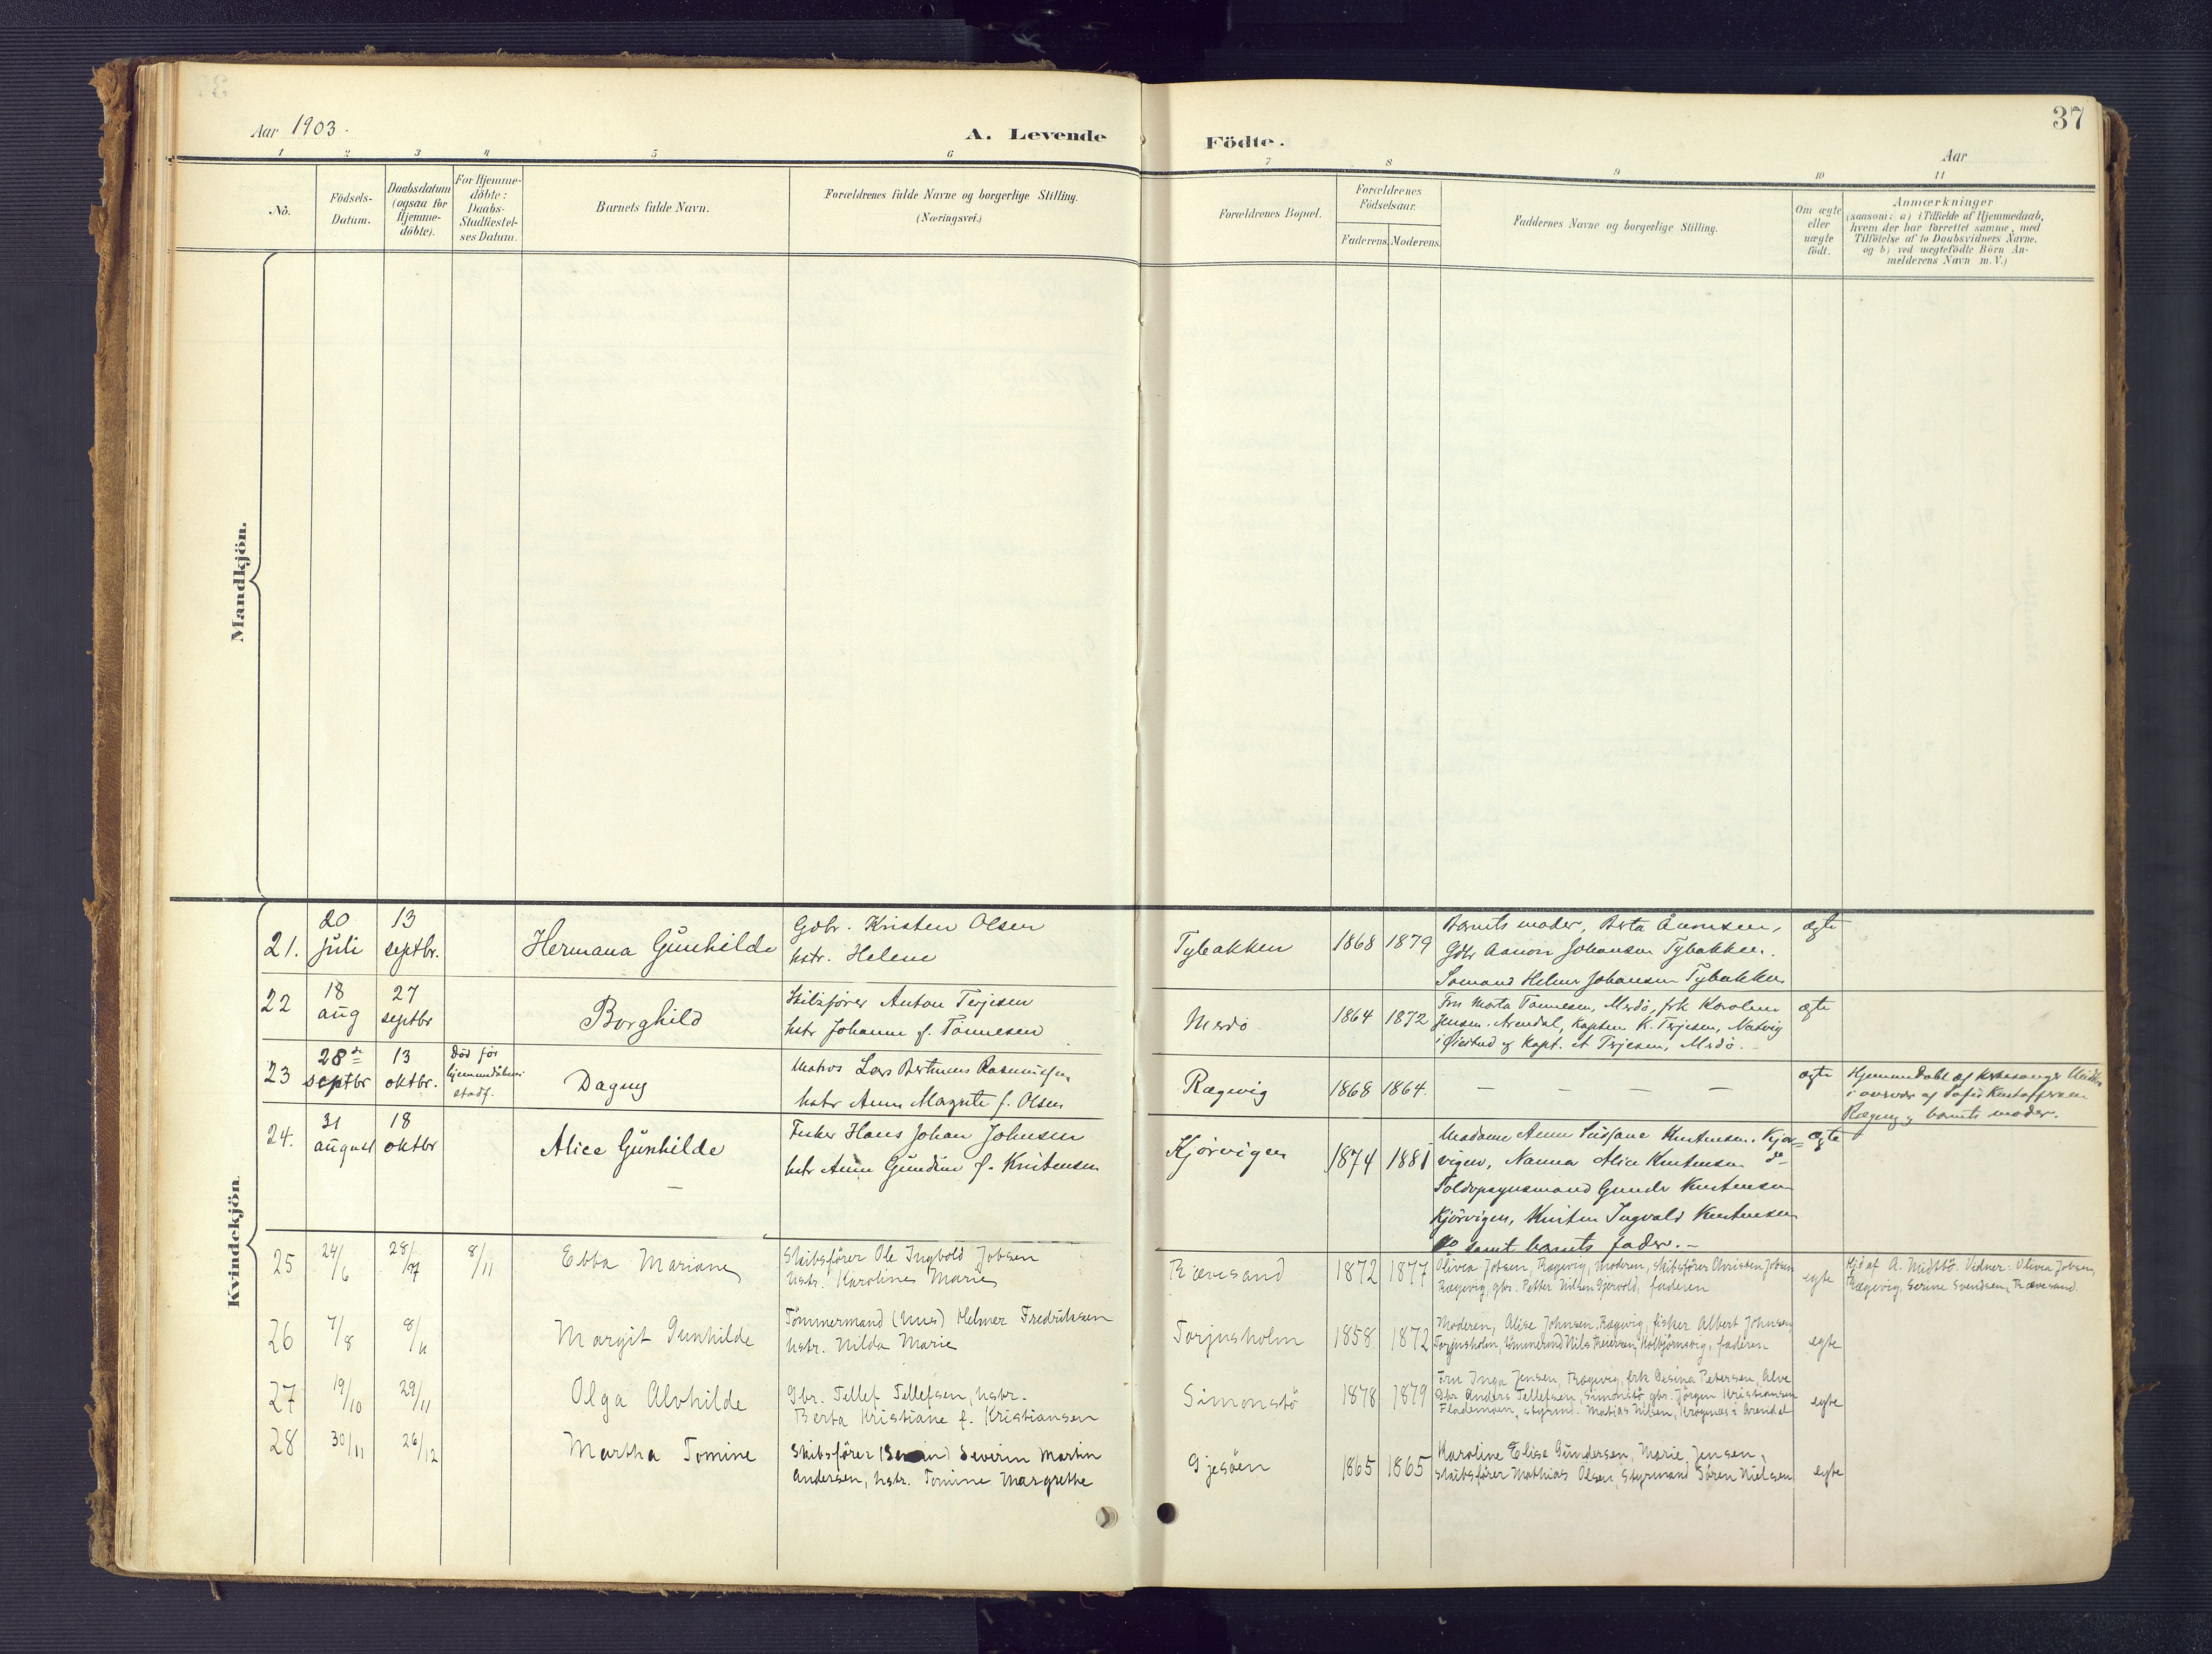 37
Aar 1903.
A. Levende Födte.
Aar
1 2 3 4 5 6 7 8 9 10 11
No.
Födsels-
Datum.
Daabsdatum
(ogsaa for
Hjemme-
döbte).
For Hjemme-
döbte:
Daabs-
Stadfæstel-
ses Datum.
Barnets fulde Navn.
Forældrenes fulde Navne og borgerlige Stilling.
(Næringsvei.)
Forældrenes Bopæl.
Forældrenes
Födselsaar.
Faderens. Moderens.
Faddernes Navne og borgerlige Stilling.
Om ægte
eller
uægte
födt.
Anmærkninger
(saasom: a) i Tilfælde af Hjemmedaab,
hvem der har forrettet samme, med
Tilföielse af to Daabsvidners Navne,
og b) ved uægtefödte Börn An-
melderens Navn m. V.)
Mandkjön.
Kvindekjön
21.
20
juli
13
septbr.
Hermana Gunhilde
Gdbr. Kristen Olsen
hstr. Helene
Tybakken
1868 1879
Barnets moder, Berta Aanonsen,
Gdbr Aanon Johansen Tybakken.
Sömand Helmer Johansen Tybakken
ægte
22
18
aug
27
septbr
Borghild
Skibsfører Anton Terjesen
hstr Johanne f. Tønnesen
Merdö
1864 1872
Fru Marta Tønnesen, Merdö, frk Karoline
Jensen, Arendal, Kaptein K. Terjesen, Natvig
i Øiestad og Kapt. A Terjesen, Merdö.
ægte
23
28de
septbr
13
oktbr.
Död før
hjemmedåbens
stadf.
Dagny
Matros Lars Rasmussen
hstr Anne Magrete f. Olsen
Rægevig
1868 1864.
— — — —
ægte
Hjemmedøbt af kirkesanger
i overvær af Sofie Kristoffersen
Rægevig og barnets moder.
24.
31
august
18
oktbr
Alice Gunhilde
Fisker Hans Johan Johnsen
hstr Anne Gundine f. Kristensen
Kjörvigen
1874 1881
Madame Anne Susane Kristensen, Kjör=
vigen, Nanna Alice Kristensen do
Toldopsynsmand Gunder Kristensen
Kjörvigen, Kristen Ingvald Kristensen
do samt barnets fader.-
ægte
25
24/6
28/7
8/11
Ebba Mariane
Skibsfører Ole Ingvold Jobsen
hstr. Karoline Marie
Rævesand
1872 1877
Olivea Jobsen, Rægevig, moderen, skibsfører Christen Jobsen
Rægevig, gbr. Petter Nilsen Gjervold, faderen
egte
Hjd af A. Midtbö. Vidner: Olivea Jobsen,
Rægevig, Serine Svendsen, Rævesand.
26
7/8
8/11
Margit Gunhilde
Tömmermand (hus) Helmer Fredriksen
hstr. Hilda Marie
Torjusholm
1858 1872
Moderen, Alise Johnsen, Rægevig, fisker Albert Johnsen,
Torjusholm, tömmermand Nils Reiersen, Kolbjörnsvig, faderen
egte
27
19/10
29/11
Olga Alvhilde
Gbr. Tellef Tellefsen, hstr.
Berta Kristiane f. Kristiansen
Simonstö
1878 1879
Fru Inga Jensen, Rægevig, frk Desina Petersen, Alve
Gbr Anders Tellefsen, Simonstö, gbr. Jörgen Kristiansen
Flademoen, styrmd. Matias Nilsen, Krögenæs i Arendal
egte
28
30/11
26/12
Martha Tomine
Skibsfører Severin Martin
Andersen, hstr. Tomine Margrethe
Gjesöen
1865 1865
Karoline Elise Gundersen, Marie Jensen,
skibsfører Mathias Olsen, styrmand Sören Nielsen
egte